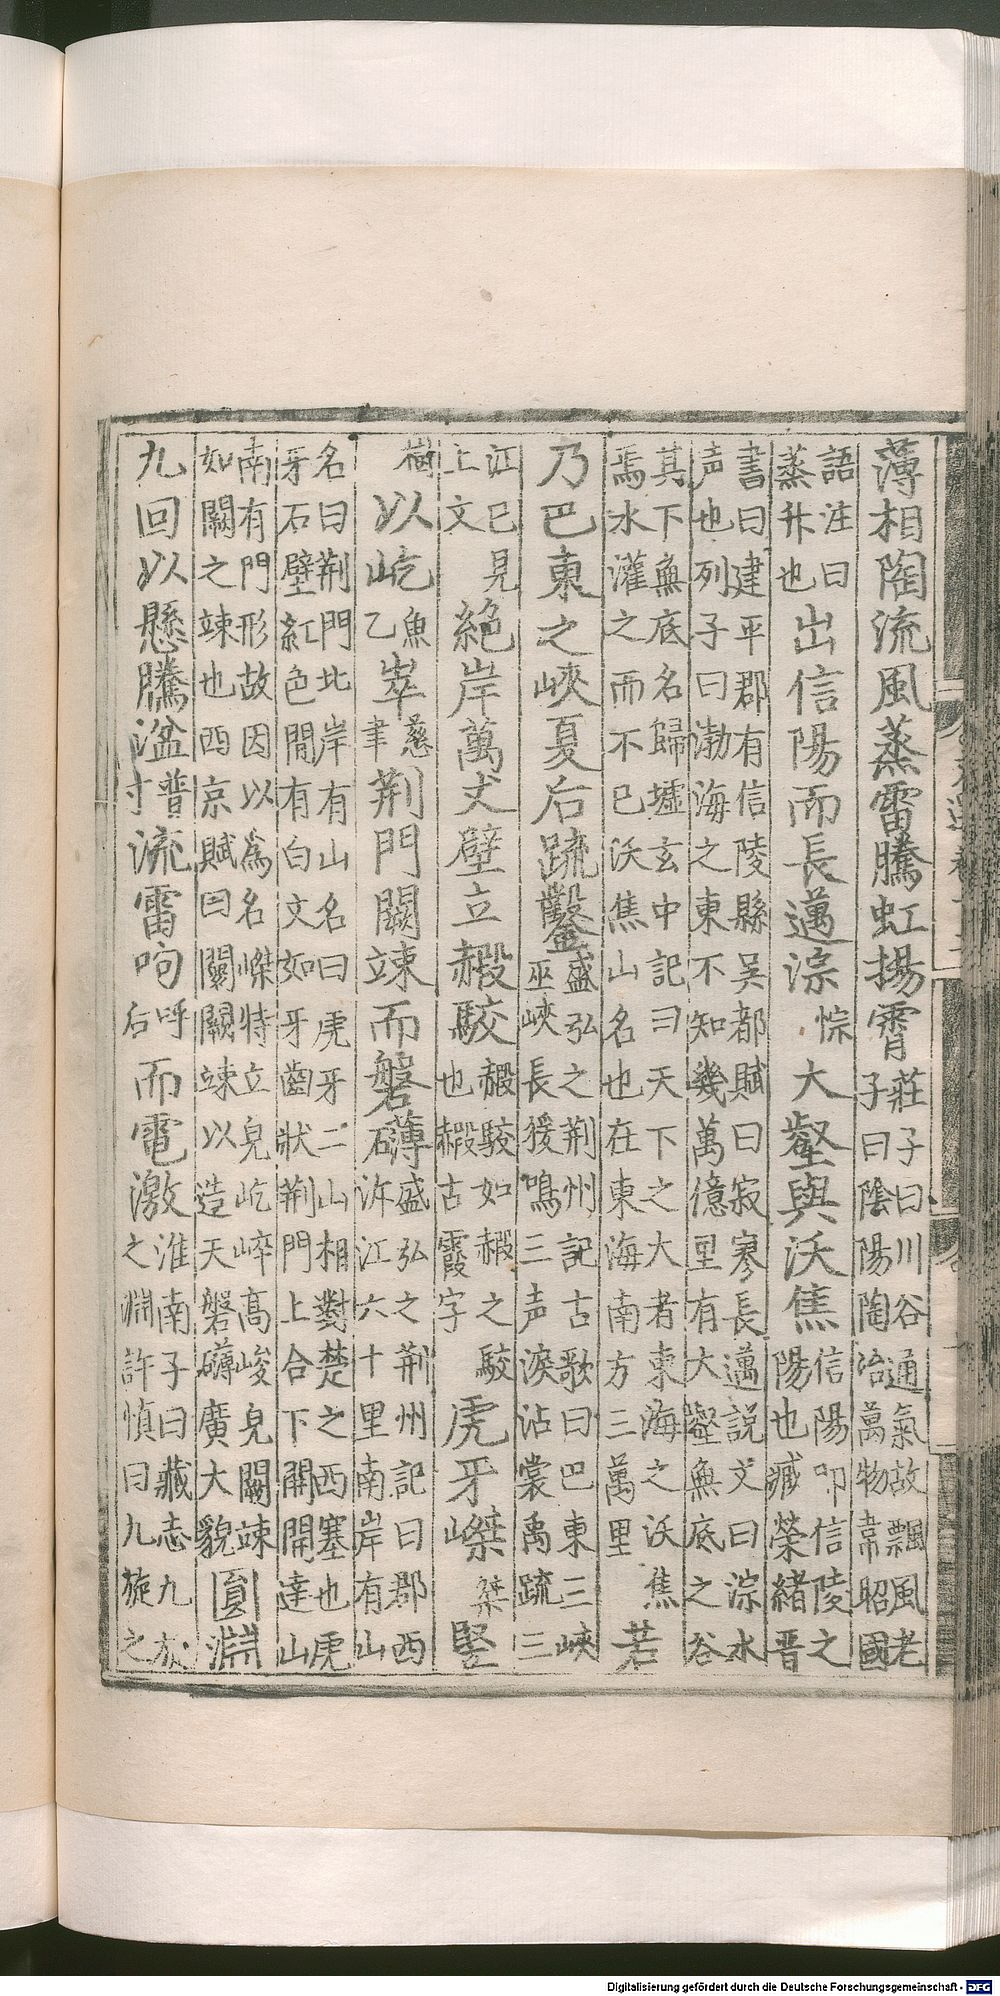 薄相陶流風蒸雷騰虹揚霄莊子曰川谷通氣故飄風老子曰陰陽陶冶萬物韋昭國
語注曰蒸升也出信陽而長邁淙悰大壑與沃焦信陽卬信陵之陽也臧榮緒晋
書曰建平郡有信陵縣吳都賦曰寂寥長邁説文曰淙水声也列子曰渤海之東不知幾萬億里有大壑無底之谷
其下無底名歸墟玄中記曰天下之大者東海之沃焦焉水灌之而不已沃焦山名也在東海南方三萬里若
乃巴東之峽夏后疏鑿盛弘之荆州記古歌曰巴東三峽巫峽長猨鳴三声淚沾裳禹疏三
江已見上文絶岸萬丈壁立赮駮赮駮如赮之駮也赮古霞字虎牙嵥桀竪
樹以屹魚乙崒慈聿荆門闕竦而磐礴盛弘之荆州記曰郡西泝江六十里南岸有山
名曰荆門北岸有山名曰虎牙二山相對楚之西塞也虎牙石壁紅色間有白文如牙齒狀荆門上合下開開達山
南有門形故因以爲名嵥特立皃屹崒高峻皃闕竦如闕之竦也西京賦曰圜闕竦以造天磐礴廣大貌圓淵
九回以懸騰湓普寸流雷呴呼后而電激淮南子曰藏志九旋之淵許慎曰九旋之
Digitalisierung gefördert durch die Deutsche Forschungsgemeinschaft - DFG